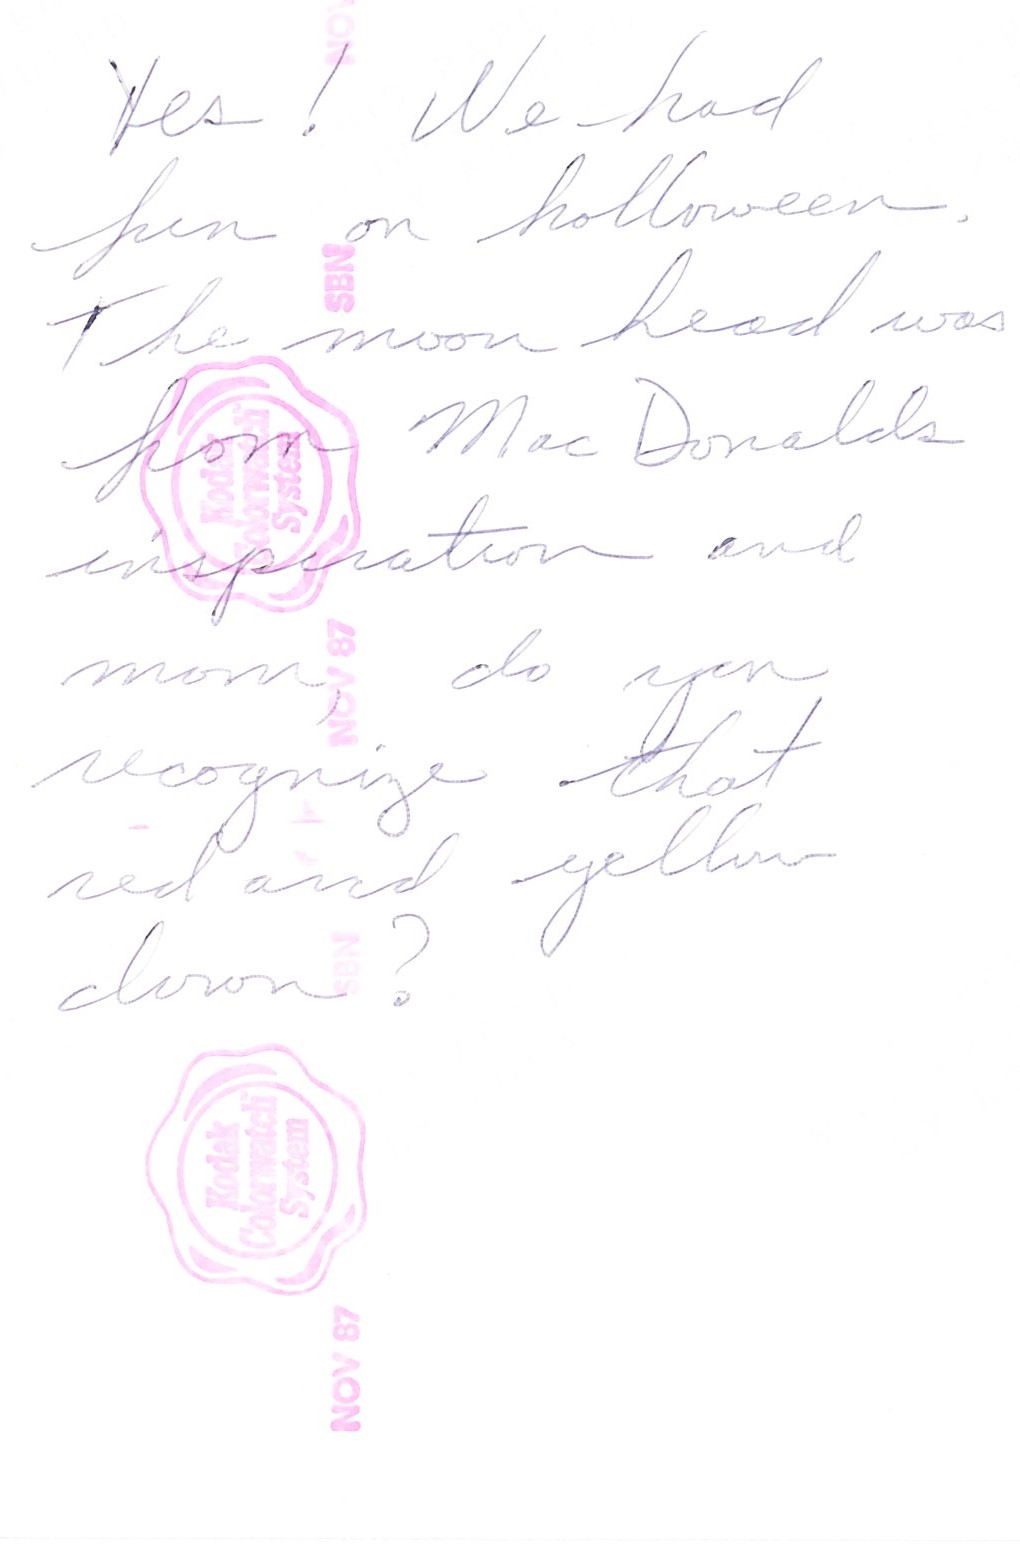 Yes! We had
fun on holloween.
The moon head was
from MacDonalds
inspiration and
mom, do you
recognize that
red and yellow
clown?
NOV
SBN
Kodak
Colorwatch™
System
NOV 87
SBN
Kodak
Colorwatch™
System
NOV 87